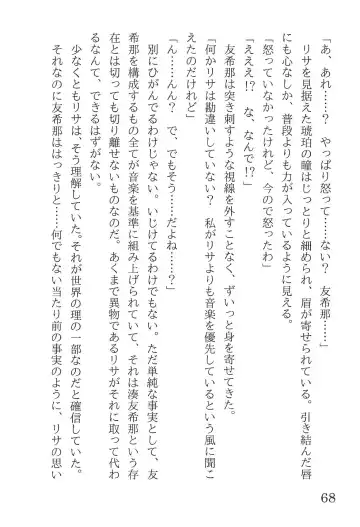 「あ、あれ……？　やっぱり怒って……ない？　友希那……」
リサを見据えた琥珀の瞳はじっとりと細められ、眉が寄せられている。引き結んだ唇
にも心なしか、普段よりも力が入っているように見える。
「怒っていなかったけれど、今ので怒ったわ」
「えええ!?　な、なんで!?」
友希那は突き刺すような視線を外すことなく、ずいっと身を寄せてきた。
「何かリサは勘違いしていない？　私がリサよりも音楽を優先しているという風に聞こ
えたのだけれど」
「ん……んん？　で、でもそう……だよね……？」
別にひがんでるわけじゃない。いじけてるわけでもない。ただ単純な事実として、友
希那を構成するもの全てが音楽を基準に組み上げられていて、それは湊友希那という存
在とは切っても切り離せないものなのだ。あくまで異物であるリサがそれに取って代わ
るなんて、できるはずがない。
少なくともリサは、そう理解していた。それが世界の理の一部なのだと確信していた。
それなのに友希那ははっきりと……何でもない当たり前の事実のように、リサの思い
68